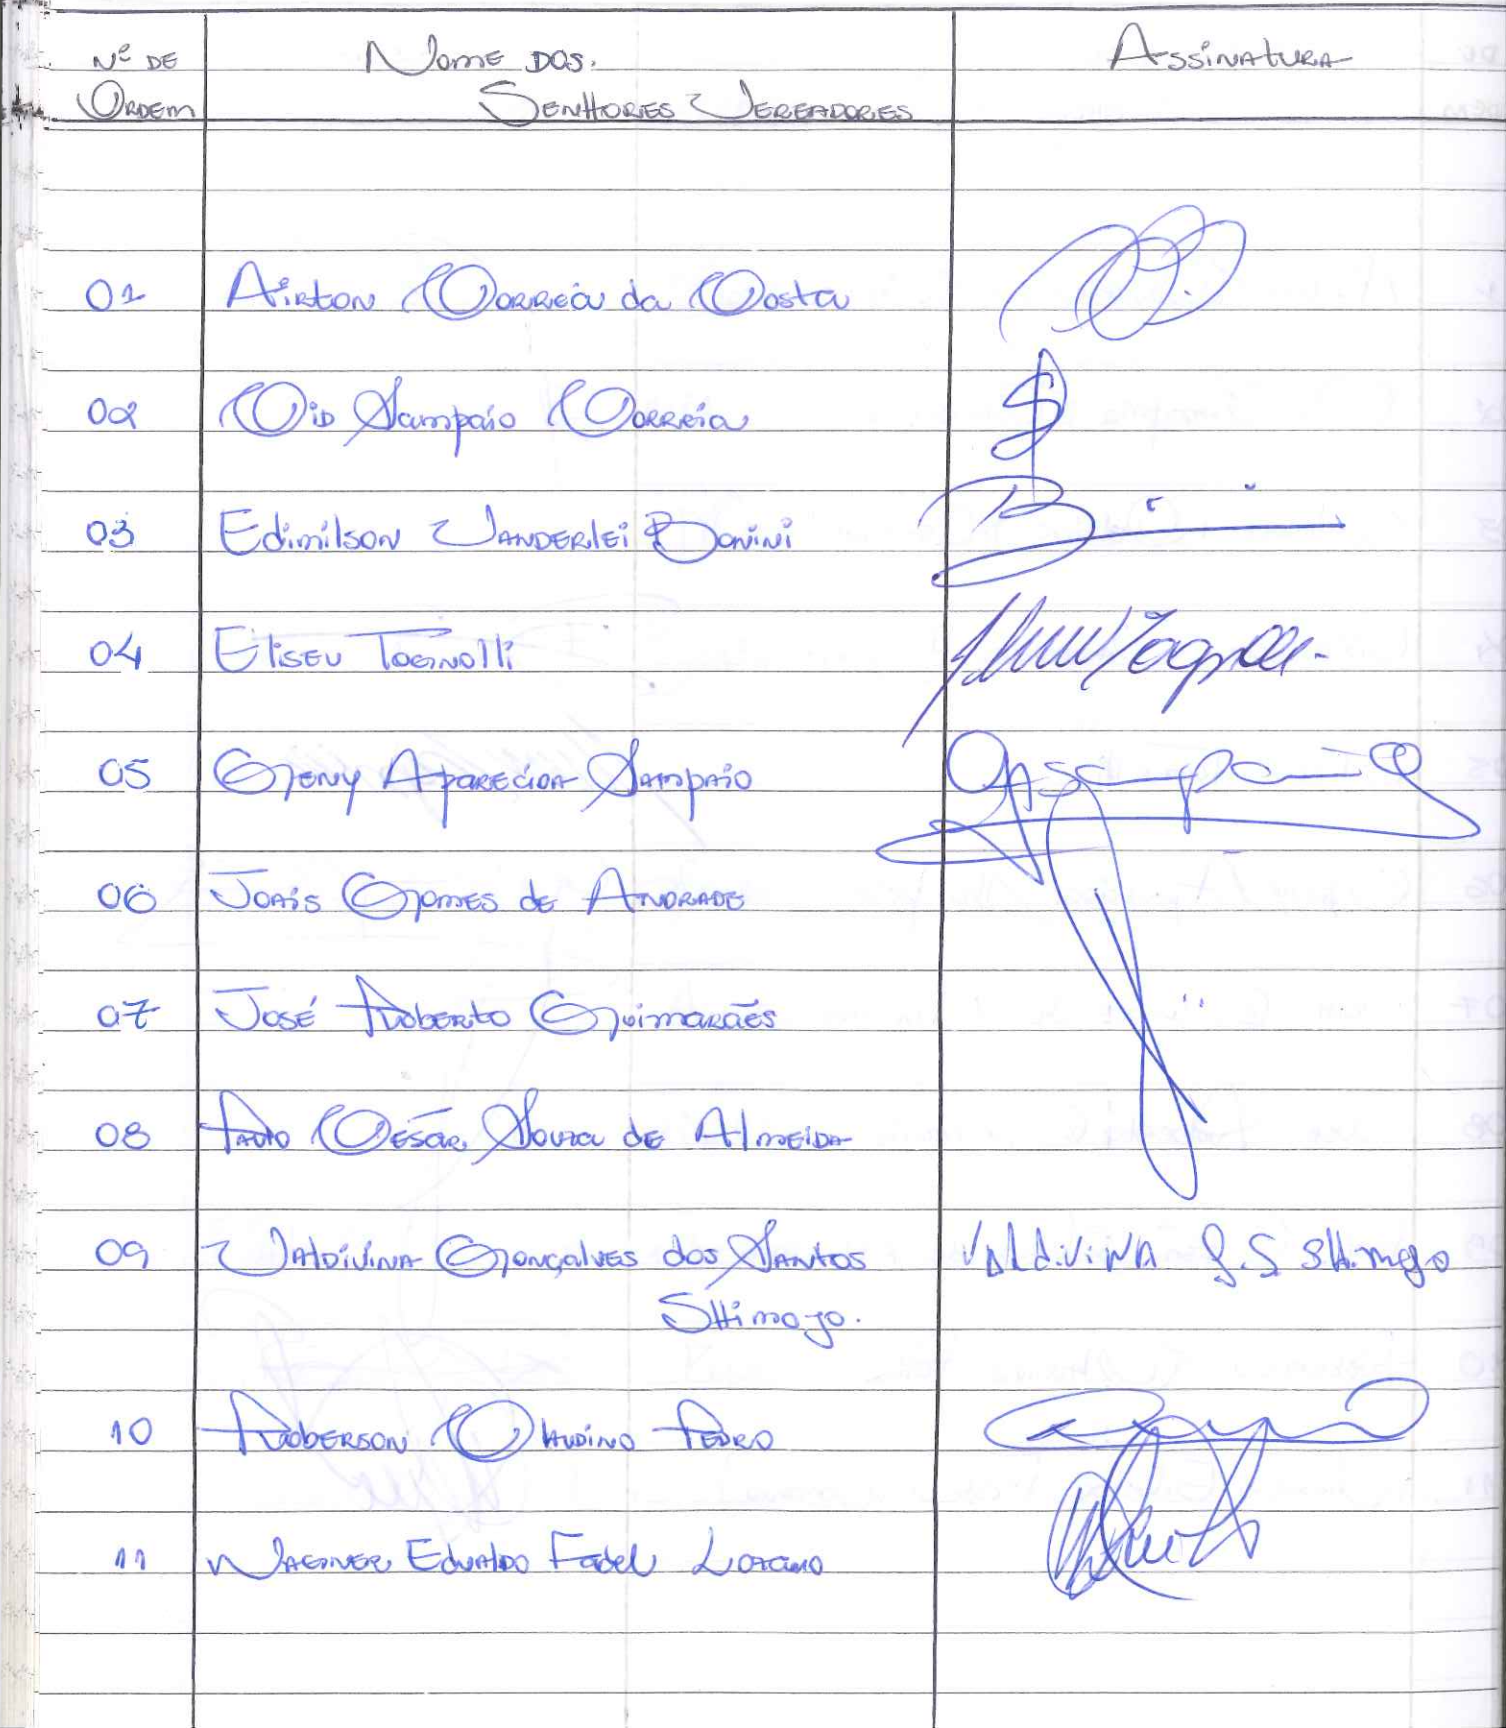 Nº DE Nome DOS. ASSINATURA
ORDEM SENHORES VEREADORES
01 Airton Correia da Costa
02 Cid Sampaio Correia
03 Edimilson Vanderlei Bonini
04 Eliseu Tognolli
05 Geny Aparecida Sampaio
06 Joais Gomes de Andrade
07 José Roberto Guimarães
08 Paulo César Souza de Almeida
09 Valdivina Gonçalves dos Santos VALdiviNA G.S SHimojo
SHimojo.
10 Roberson Claudino Pedro
11 Wagner Edvaldo Fadel Lozano